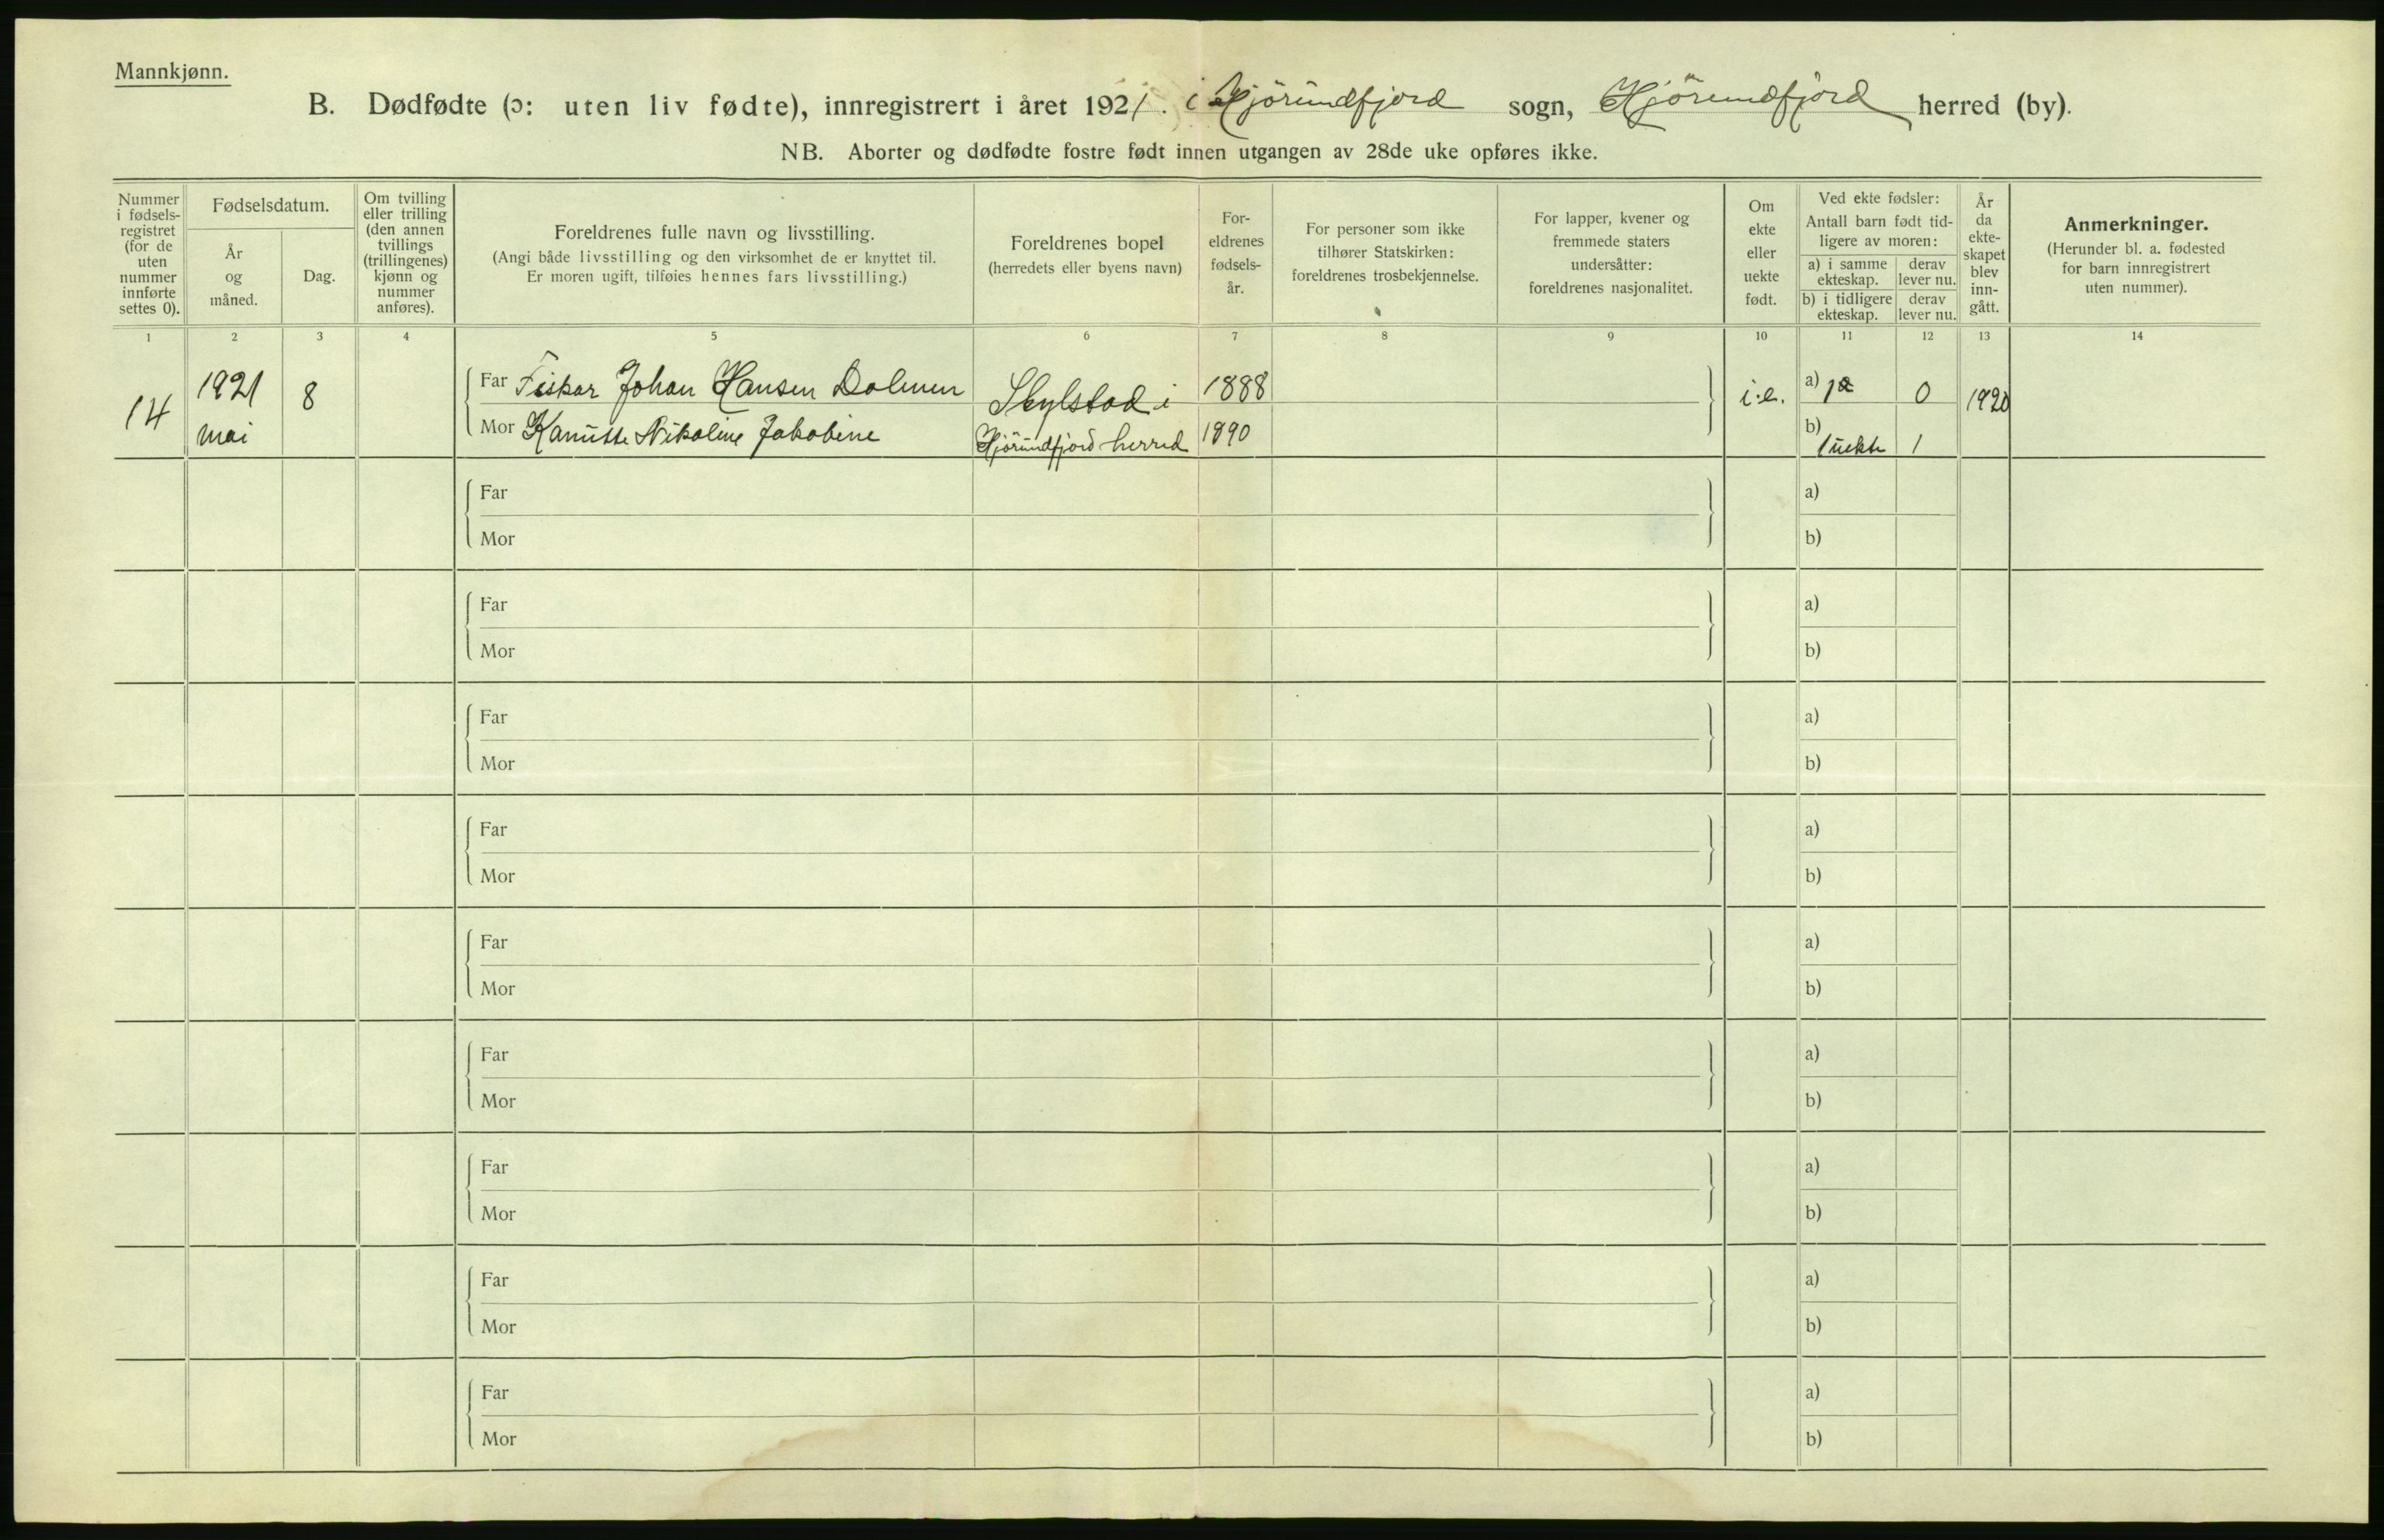 Mannkjønn.
B. Dødfødte (ɔ: uten liv fødte), innregistrert i året 1921. i Hjörundfjord sogn, Hjörundfjord herred (by).
NB. Aborter og dødfødte fostre født innen utgangen av 28de uke opføres ikke.
Nummer
i fødsels-
registret
(for de
uten
nummer
innførte
settes 0).
Fødselsdatum.
År
og
måned.
Dag.
Om tvilling
eller trilling
(den annen
tvillings
(trillingenes)
kjønn og
nummer
anføres).
Foreldrenes fulle navn og livsstilling.
(Angi både livsstilling og den virksomhet de er knyttet til.
Er moren ugift, tilføies hennes fars livsstilling.)
Foreldrenes bopel
(herredets eller byens navn)
For-
eldrenes
fødsels-
år.
For personer som ikke
tilhører Statskirken:
foreldrenes trosbekjennelse.
For lapper, kvener og
fremmede staters
undersåtter:
foreldrenes nasjonalitet.
Om
ekte
eller
uekte
født.
Ved ekte fødsler:
Antall barn født tid-
ligere av moren:
a) i samme
ekteskap.
derav
lever nu.
b) i tidligere
ekteskap.
derav
lever nu.
År
da
ekte-
skapet
blev
inn-
gått.
Anmerkninger.
(Herunder bl. a. fødested
for barn innregistrert
uten nummer).
1 2 3 4 5 6 7 8 9 10 11 12 13 14
14
1921
mai
8
Far Fiskar Johan Hansen Dalmen
Mor Kanutte Nikoline Jakobine
Skylstad i
Hjörundfjord herred
1888
1890
i.e.
a)
0
b) 1 uekte
1
1920
Far
Mor
a)
b)
Far
Mor
a)
b)
Far
Mor
a)
b)
Far
Mor
a)
b)
Far
Mor
a)
b)
Far
Mor
a)
b)
Far
Mor
a)
b)
Far
Mor
a)
b)
Far
Mor
a)
b)